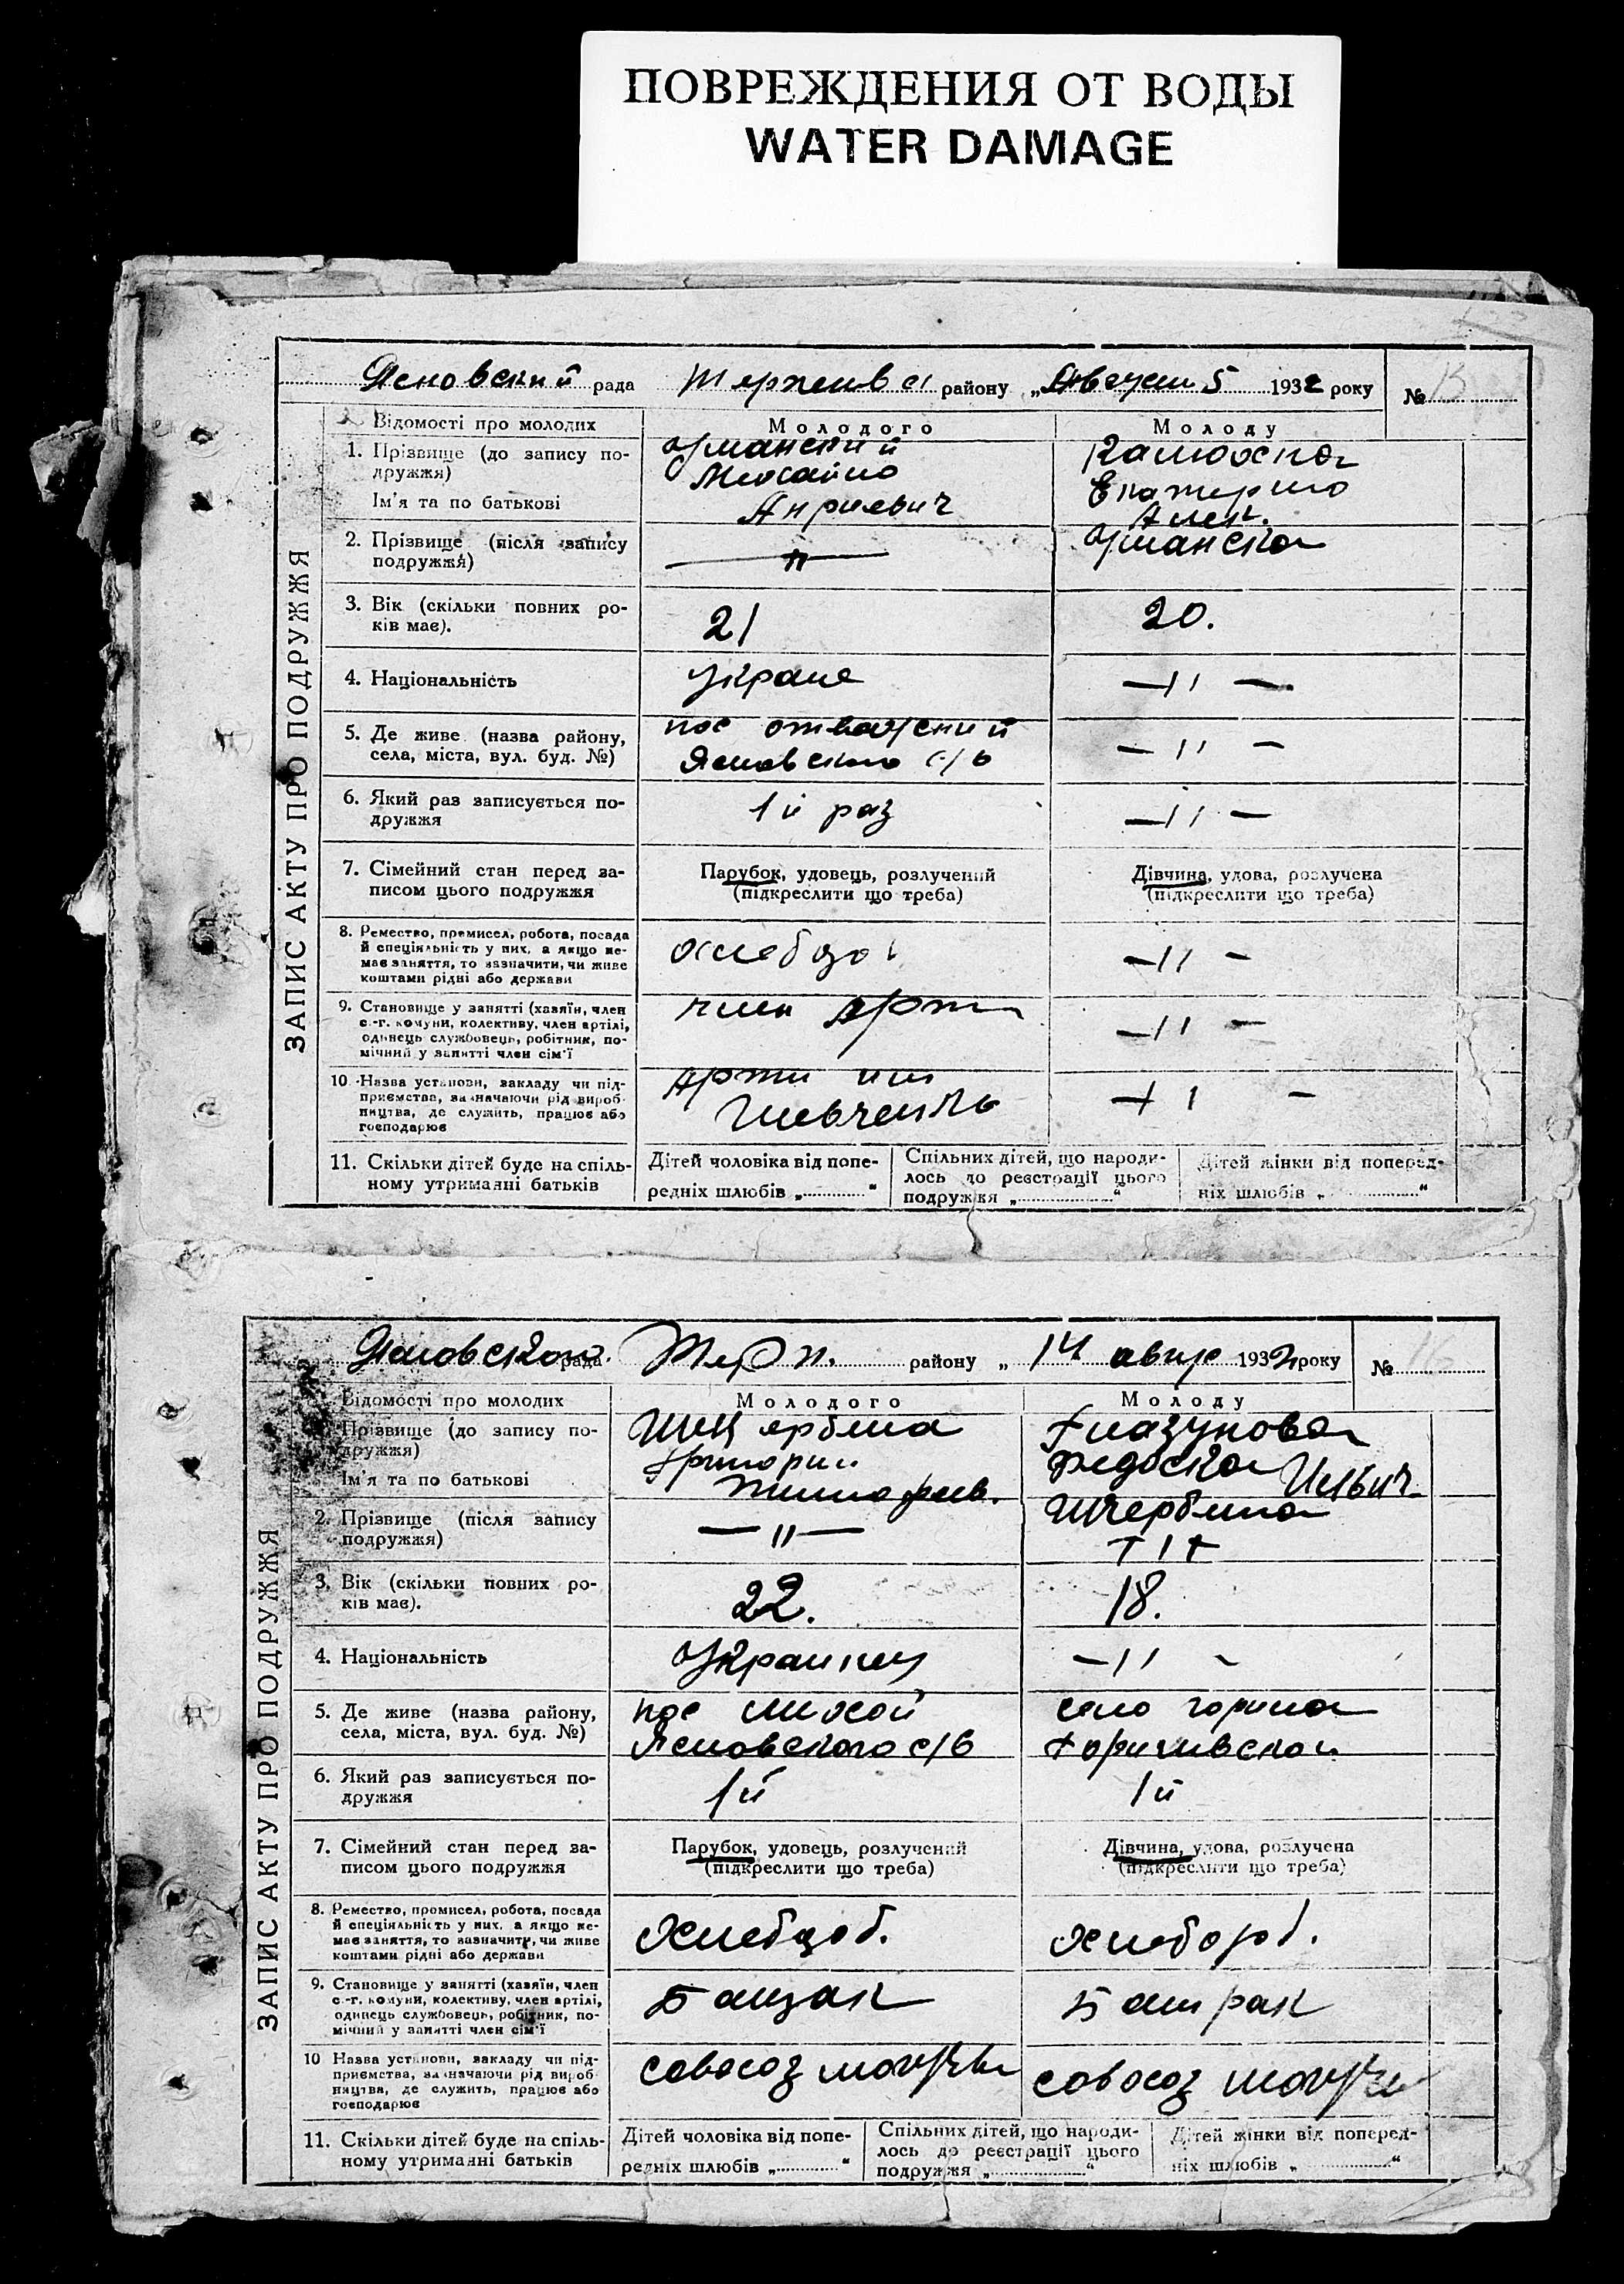 ПОВРЕЖДЕНИЯ ОТ ВОДЫ
WATER DAMAGE
Ясновский рада району „Август 5 1932 року №
ЗАПИС АКТУ ПРО ПОДРУЖЖЯ
Відомості про молодих Молодого Молоду
1. Прізвище (до запису по- Уманский
дружжя) Михайло Екатерина
Ім'я та по батькові Алек.
2. Прізвище (після запису — „ — Уманска
подружжя)
3. Вік (скільки повних ро- 21 20.
ків має).
4. Національність Украине — „ —
5. Де живе (назва району, пос отважений — „ —
села, міста, вул. буд. №) Ясновского с/в
6. Який раз записується по- 1й раз — „ —
дружжя
7. Сімейний стан перед за- Парубок, удовець, розлучений Дівчина, удова, розлучена
писом цього подружжя (підкреслити що треба) (підкреслити що треба)
8. Ремество, промисел, робота, посада — „ —
й спеціяльність у них, а якщо не-
має заняття, то зазначити, чи живе
коштами рідні або держави
9. Становище у занятті (хазяїн, член член арт — „ —
с.-г. комуни, колективу, член артілі,
одинець службовець, робітник, по-
мічний у занятті член сім'ї
10. Назва установи, закладу чи під- Арти им
приємства, зазначаючи рід вироб- Шевченко
ництва, де служить, працює або
господарює
11. Скільки дітей буде на спіль- Дітей чоловіка від попе- Спільних дітей, що народи- Дітей жінки від поперед-
ному утриманні батьків редніх шлюбів „ “ лось до реєстрації цього ніх шлюбів „ “
подружжя „ “
Ясновского рада Терп. району „ 14 авгус 1932 року №
ЗАПИС АКТУ ПРО ПОДРУЖЖЯ
Відомості про молодих Молодого Молоду
Прізвище (до запису по- Глазунова
дружжя) Григорий Федоска Ильич.
Ім'я та по батькові Тимофеев.
2. Прізвище (після запису — „ — Щчербина
подружжя)
3. Вік (скільки повних ро- 22. 18.
ків має).
4. Національність Украинец — „ —
5. Де живе (назва району, пос село
села, міста, вул. буд. №) Ясновского с/в
6. Який раз записується по- 1й 1й
дружжя
7. Сімейний стан перед за- Парубок, удовець, розлучений Дівчина, удова, розлучена
писом цього подружжя (підкреслити що треба) (підкреслити що треба)
8. Ремество, промисел, робота, посада
й спеціяльність у них, а якщо не-
має заняття, то зазначити, чи живе
коштами рідні або держави
9. Становище у занятті (хазяїн, член Батрак
с.-г. комуни, колективу, член артілі,
одинець службовець, робітник, по-
мічний у занятті член сім'ї
10 Назва установи, закладу чи під- совхоз совхоз
приємства, зазначаючи рід вироб-
ництва, де служить, працює або
господарює
11. Скільки дітей буде на спіль- Дітей чоловіка від попе- Спільних дітей, що народи- Дітей жінки від поперед-
ному утриманні батьків редніх шлюбів „ “ лось до реєстрації цього ніх шлюбів „ “
подружжя „ “